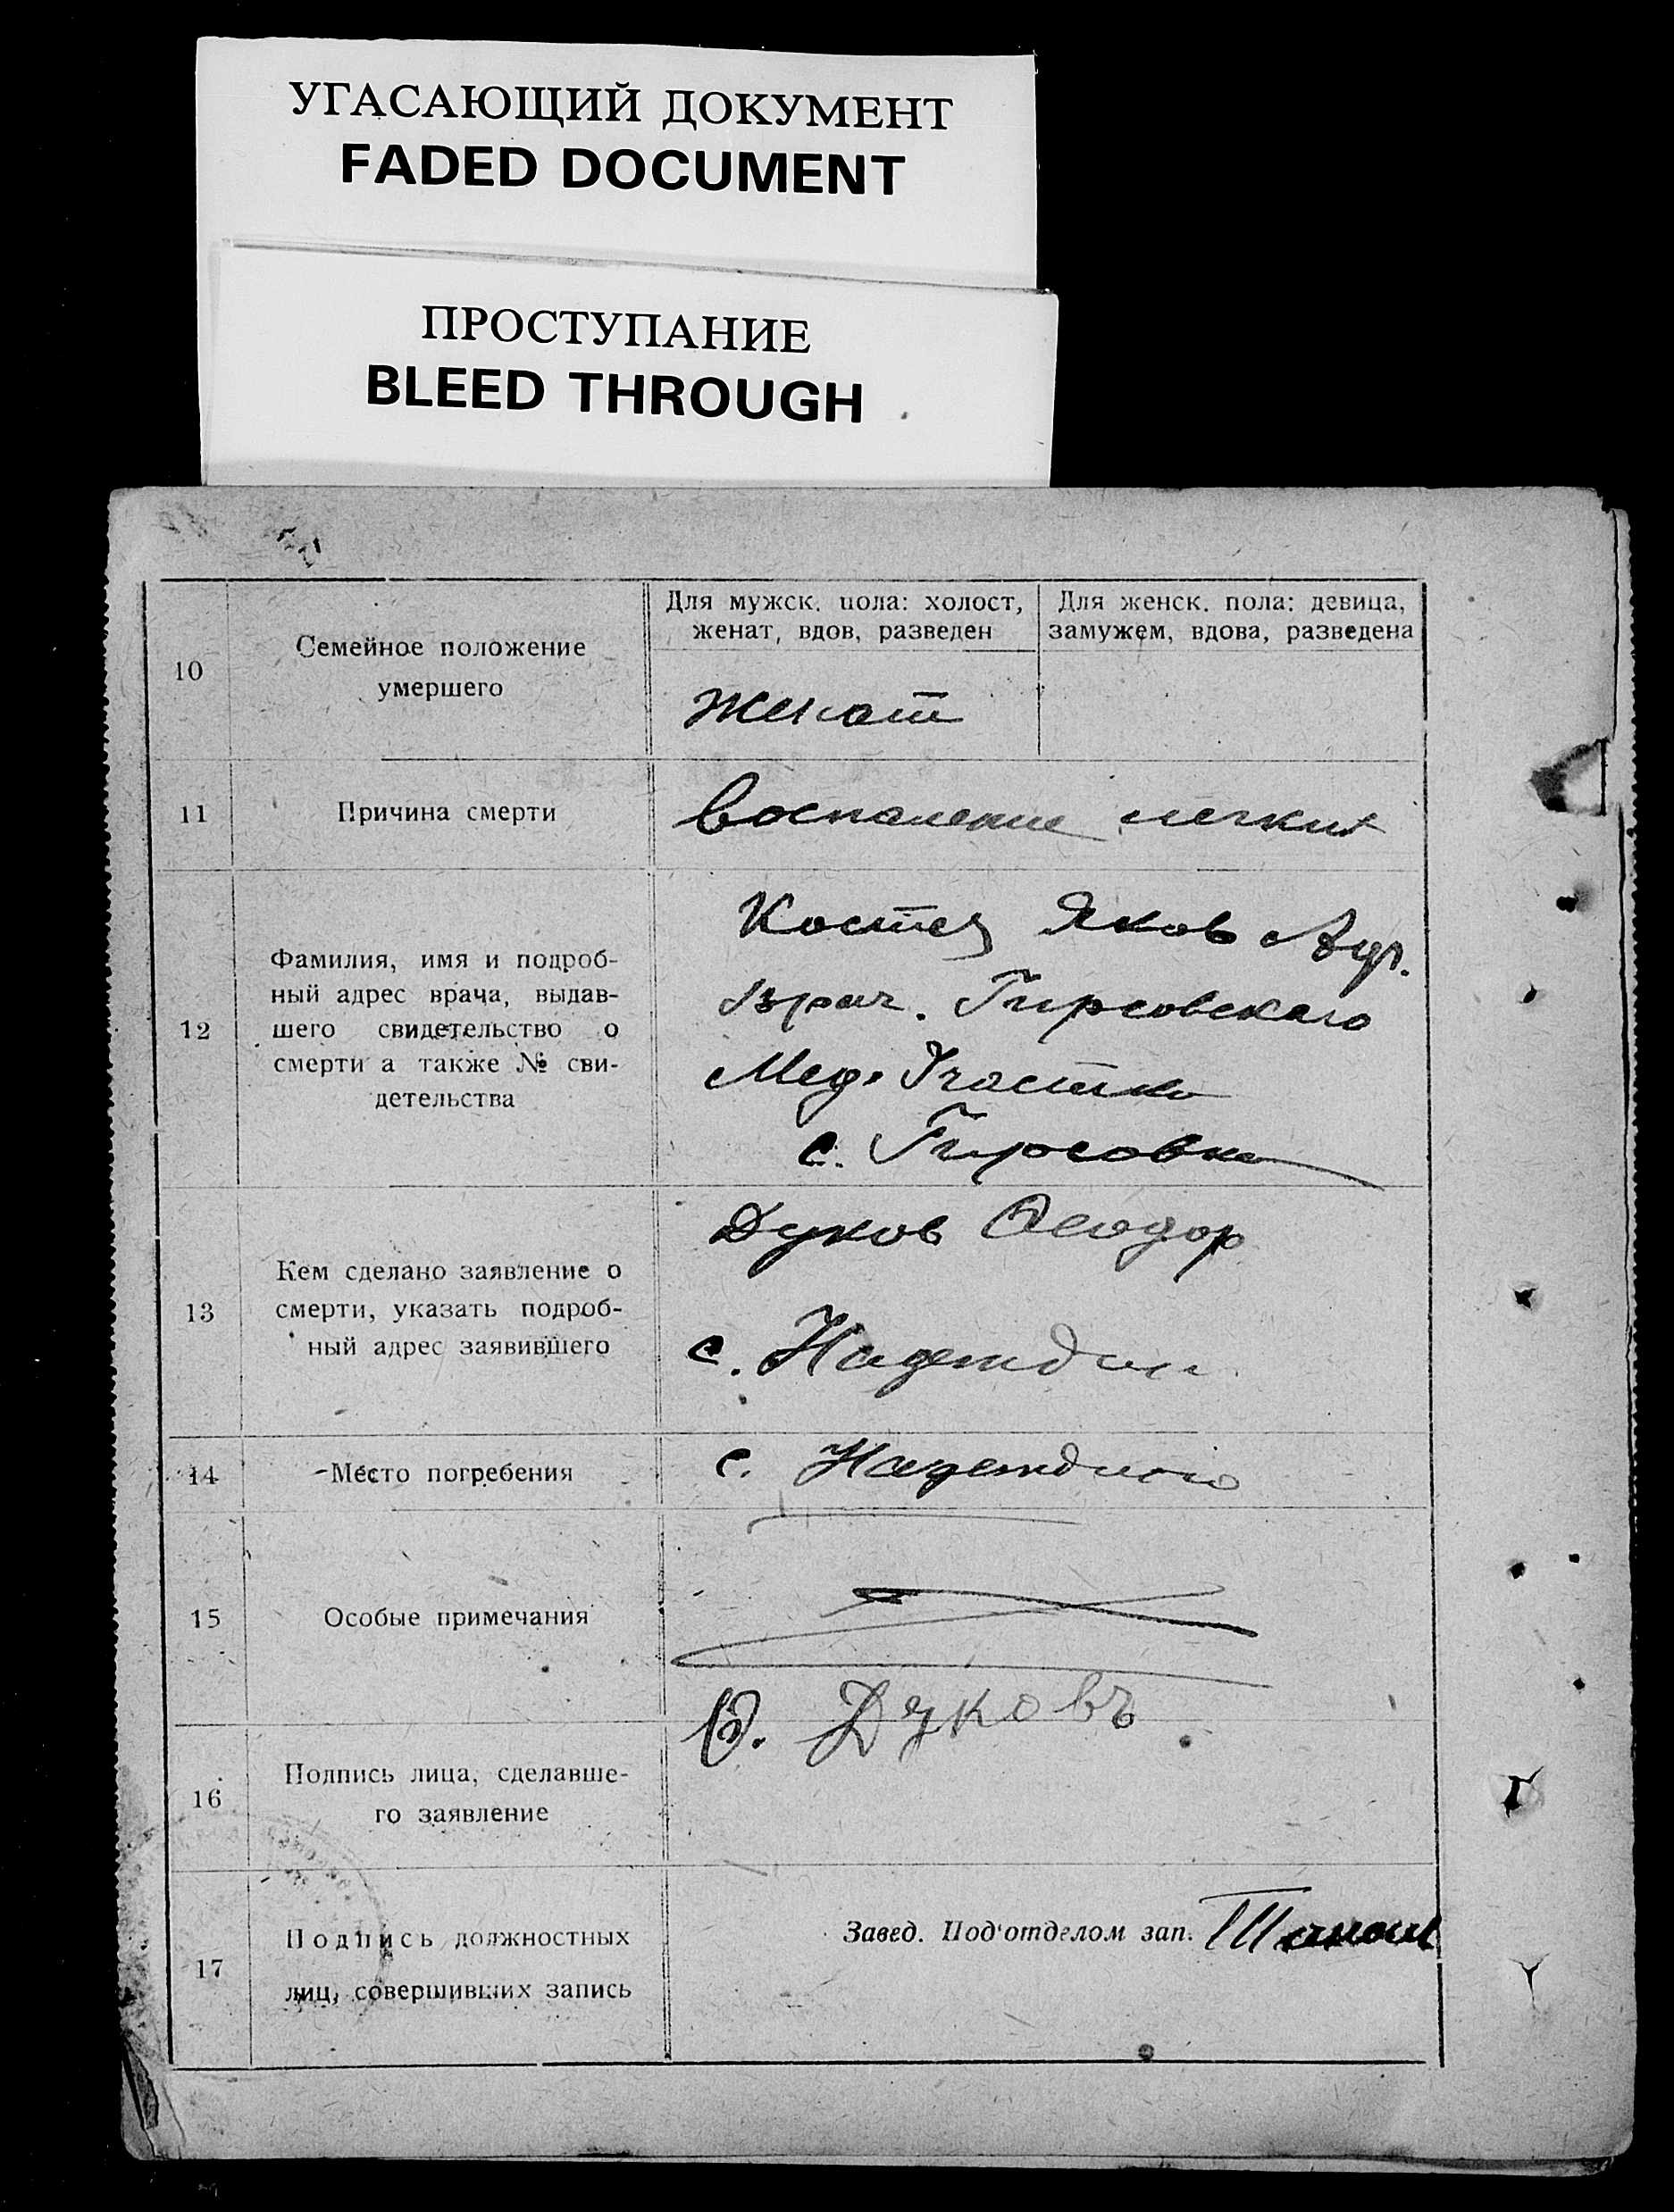 УГАСАЮЩИЙ ДОКУМЕНТ
FADED DOCUMENT
ПРОСТУПАНИЕ
BLEED THROUGH
10
Семейное положение
умершего
Для мужск. пола: холост,
женат, вдов, разведен
Для женск. пола: девица,
замужем, вдова, разведена
Женат
11
Причина смерти
Воспаление легких
12
Фамилия, имя и подроб-
ный адрес врача, выдав-
шего свидетельство о
смерти а также № сви-
детельства
Яков
Врач. Гирсовскаго
Мед. Участка
с. Гирсовка
13
Кем сделано заявление о
смерти, указать подроб-
ный адрес заявившего
Дуков Феодор
с.
14
Место погребения
с. Надеждино
15
Особые примечания
16
Подпись лица, сделавше-
го заявление
Ѳ. Дуковъ
17
Подпись должностных
лиц, совершивших запись
Завед. Под'отделом зап.